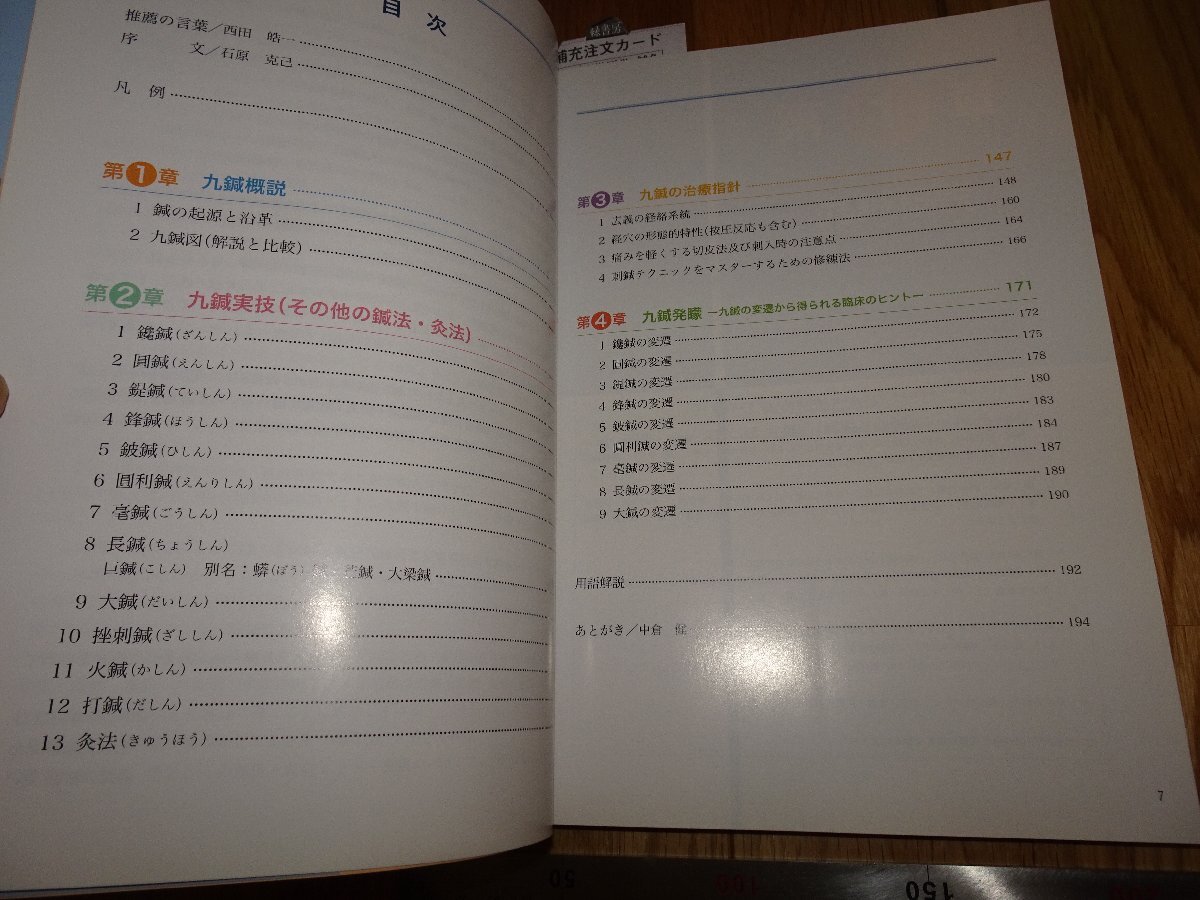 目次
推薦の言葉／西田 皓一
序 文／石原 克己
凡 例
第1章 九鍼概説
1 鍼の起源と沿革
2 九鍼図(解説と比較)
第2章 九鍼実技(その他の鍼法・灸法)
1 鑱鍼(ざんしん)
2 圓鍼(えんしん)
3 鍉鍼(ていしん)
4 鋒鍼(ほうしん)
5 鈹鍼(ひしん)
6 圓利鍼(えんりしん)
7 毫鍼(ごうしん)
8 長鍼(ちょうしん)
巨鍼(こしん) 別名：蟒(ぼう) 鍼・大梁鍼
9 大鍼(だいしん)
10 挫刺鍼(ざししん)
11 火鍼(かしん)
12 打鍼(だしん)
13 灸法(きゅうほう)
緑書房
補充注文カード
第3章 九鍼の治療指針 147
1 広義の経絡系統 148
2 経穴の形態的特性(按圧反応も含む) 160
3 痛みを軽くする切皮法及び刺入時の注意点 164
4 刺鍼テクニックをマスターするための修練法 166
第4章 九鍼発矇 ―九鍼の変遷から得られる臨床のヒント― 171
1 鑱鍼の変遷 172
2 圓鍼の変遷 175
3 鍉鍼の変遷 178
4 鋒鍼の変遷 180
5 鈹鍼の変遷 183
6 圓利鍼の変遷 184
7 毫鍼の変遷 187
8 長鍼の変遷 189
9 大鍼の変遷 190
用語解説 192
あとがき／中倉 健 194
7
50
100
150